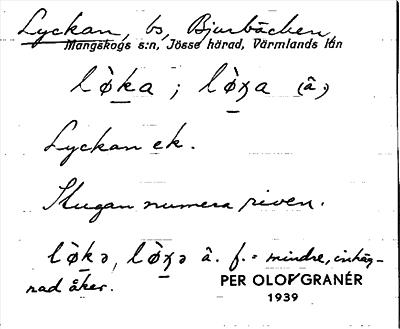 Lyckan, bs, Bjurbäcken,
Mangskogs s:n, Jösse härad, Värmlands län
lò̠ka ; lò̠ʒa (â,)
Lyckan ek.
Stugan numera riven.
lò̠kə, lò̠ʒə â. f. = mindre, inhäg-
nad åker.
PER OLOF GRANÉR
1939